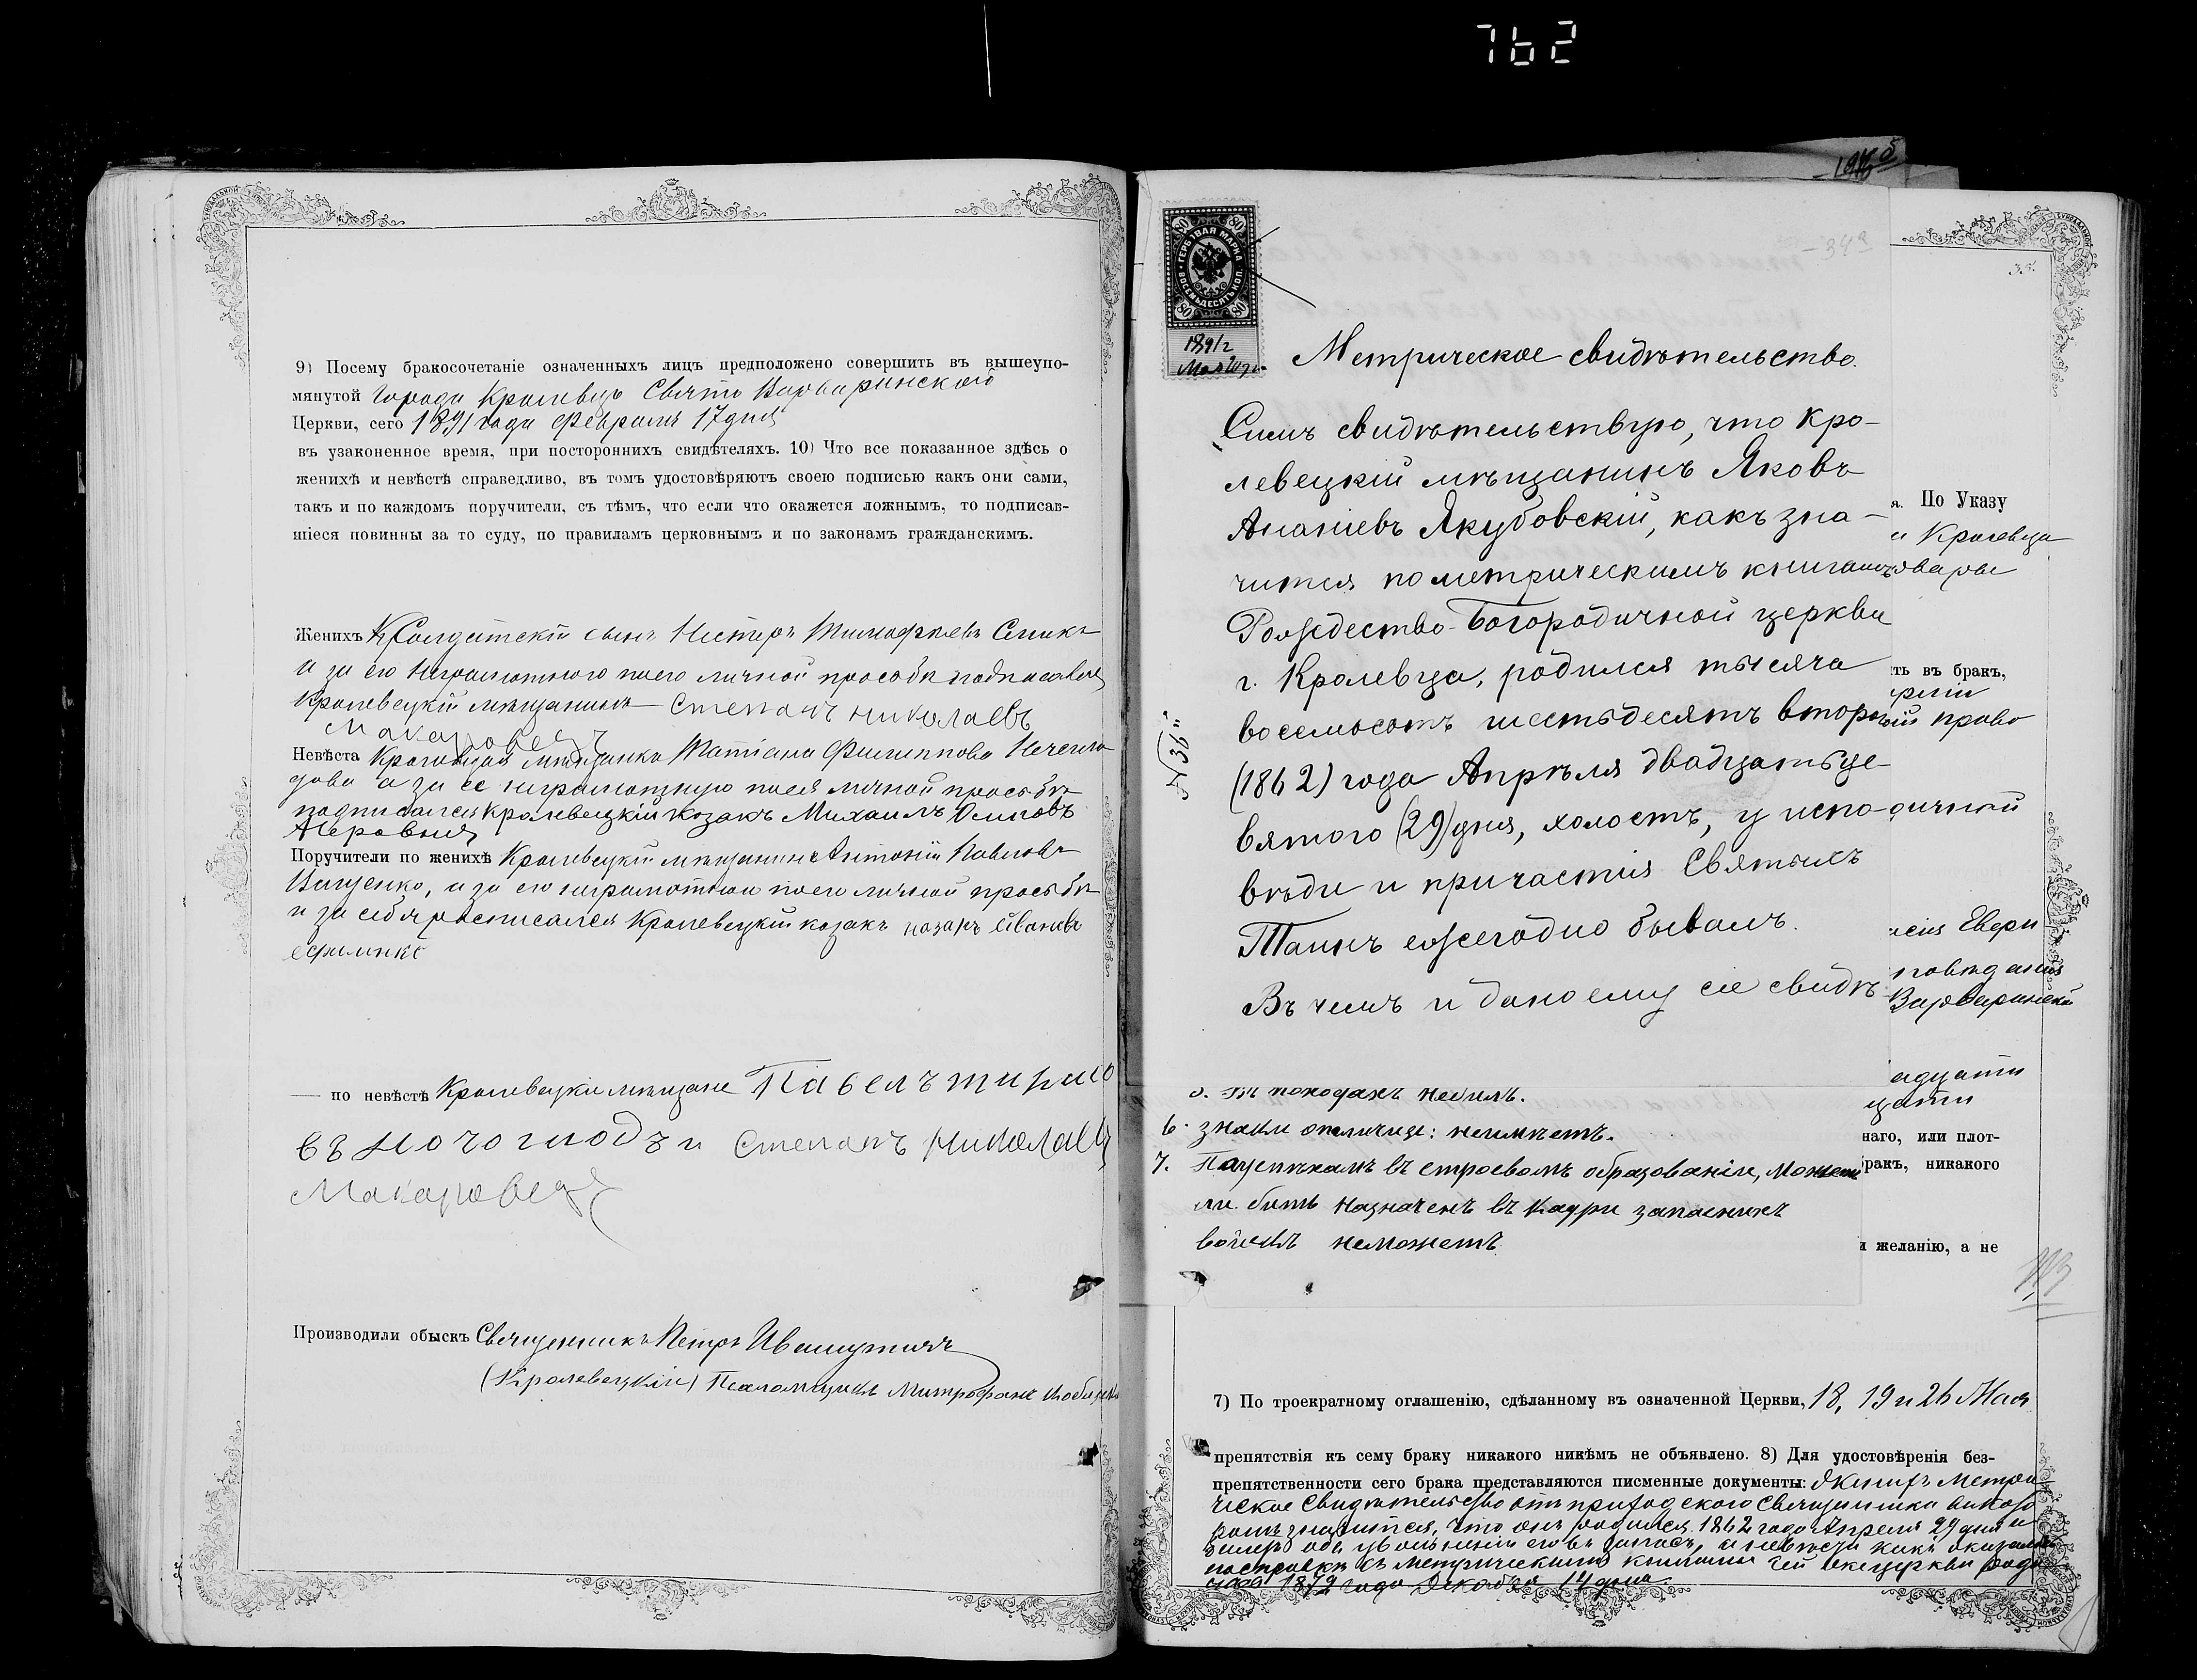 762
9) Посему бракосочетаніе означенныхъ лицъ предположено совершить въ вышеупо-
мянутой города Кролевца Свято Варваринской
Церкви, сего 1891 года Февраля 17 дня
въ узаконенное время, при постороннихъ свидѣтеляхъ. 10) Что все показанное здѣсь о
женихѣ и невѣстѣ справедливо, въ томъ удостовѣряютъ своею подписью какъ они сами,
такъ и по каждомъ поручители, съ тѣмъ, что если что окажется ложнымъ, то подписав-
шіеся повинны за то суду, по правиламъ церковнымъ и по законамъ гражданскимъ.
Женихъ Солдатскій сынъ Несторъ Тимофѣевъ
и за его неграмотного по его личной просьбѣ подписался
Кролевецкій мѣщанинъ Степанъ Николаевъ
Макаровецъ
Невѣста Кролевецкая мѣщанка Татіана Филиппова
а за ее неграмотную по ея личной просьбѣ
подписался Кролевецкій козакъ Михаилъ Осиповъ
Поручители по женихѣ Кролевецкій мѣщанинъ Антоній Павловъ
Ващенко, а за его неграмотного по его личной просьбѣ
и за себя росписался Кролевецкій козакъ назаръ Ивановъ
ефименко
— по невѣстѣ Кролевецкіе мѣщане Павелъ
и Степанъ Николаевъ
Макаровецъ
Производили обыскъ Священникъ Петръ
(Кролевецкій) Псаломщикъ Митрофанъ
80 80
ГЕРБОВАЯ МАРКА
ВОСЕМЬДЕСЯТЪ КОП.
80 80
1891 г
Мая
34а
35.
Метрическое свидѣтельство.
Симъ свидѣтельствую, что Кро-
левецкій мѣщанинъ Яковъ
Ананіевъ Якубовскій, какъ зна-
чится по метрическимъ книгамъ
Рождество-Богородичной церкви
г. Кролевца, родился тысяча
восемьсотъ шестьдесятъ второй
(1862) года Апрѣля двадцать де-
вятого (29) дня, холостъ, у испо-
вѣди и причастія Святыхъ
Таинъ ежегодно бывалъ.
Въ чемъ и дано ему сіе свидѣ
№ 38
я. По Указу
Кролевца
ть въ бракъ,
право
Варваринской
наго, или плот-
ракъ, никакого
и желанію, а не
походахъ небылъ.
6. знаки отличія: неимѣетъ.
7. По успѣхамъ въ строевомъ образованіи, можетъ
ли быть назначенъ въ кадри запасныхъ
войскъ неможетъ
7) По троекратному оглашенію, сдѣланному въ означенной Церкви, 18, 19 и 26 Мая
препятствія къ сему браку никакого никѣмъ не объявлено. 8) Для удостовѣренія без-
препятственности сего брака представляются писменные документы: Метри
ческое свидѣтельство отъ приходского Священника въ кото
ромъ значится, что онъ родился 1862 года Апреля 29 дня и
билетъ объ увольненіи его въ запасъ, а невѣста какъ оказалось
по справкѣ съ метрическими книгами сей же церкви роди
лась 1872 года Декабря 14 дня